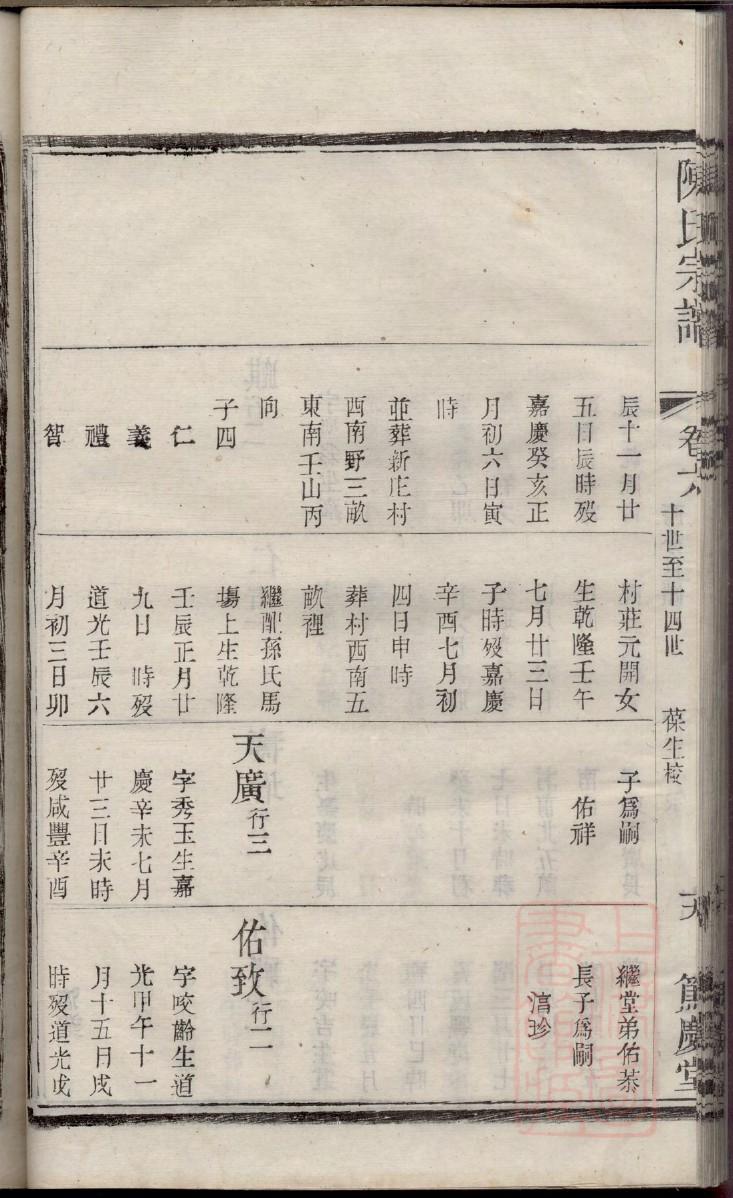 陳氏宗譜
卷六
十世至十四世
葆生校
篤慶堂
辰十一月廿
五日辰時歿
嘉慶癸亥正
月初六日寅
時
並葬新庄村
西南野三畝
東南壬山丙
向
子四
仁
義
禮
智
村莊元開女
生乾隆壬午
七月廿三日
子時歿嘉慶
辛酉七月初
四日申時
葬村西南五
畝裡
繼配孫氏馬
塲上生乾隆
壬辰正月廿
九日 時歿
道光壬辰六
月初三日卯
子爲嗣
佑祥
天廣行三
字秀玉生嘉
慶辛未七月
廿三日未時
歿咸豐辛酉
繼堂弟佑恭
長子爲嗣
湻珍
佑致行二
字咬齡生道
光甲午十一
月十五日戌
時歿道光戊